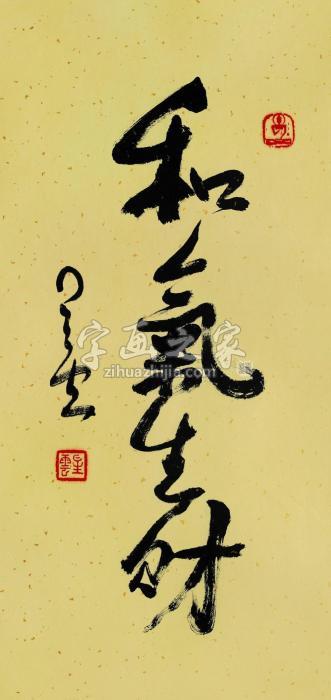 和氣生財
星雲
字画之家
zihuazhijia.com